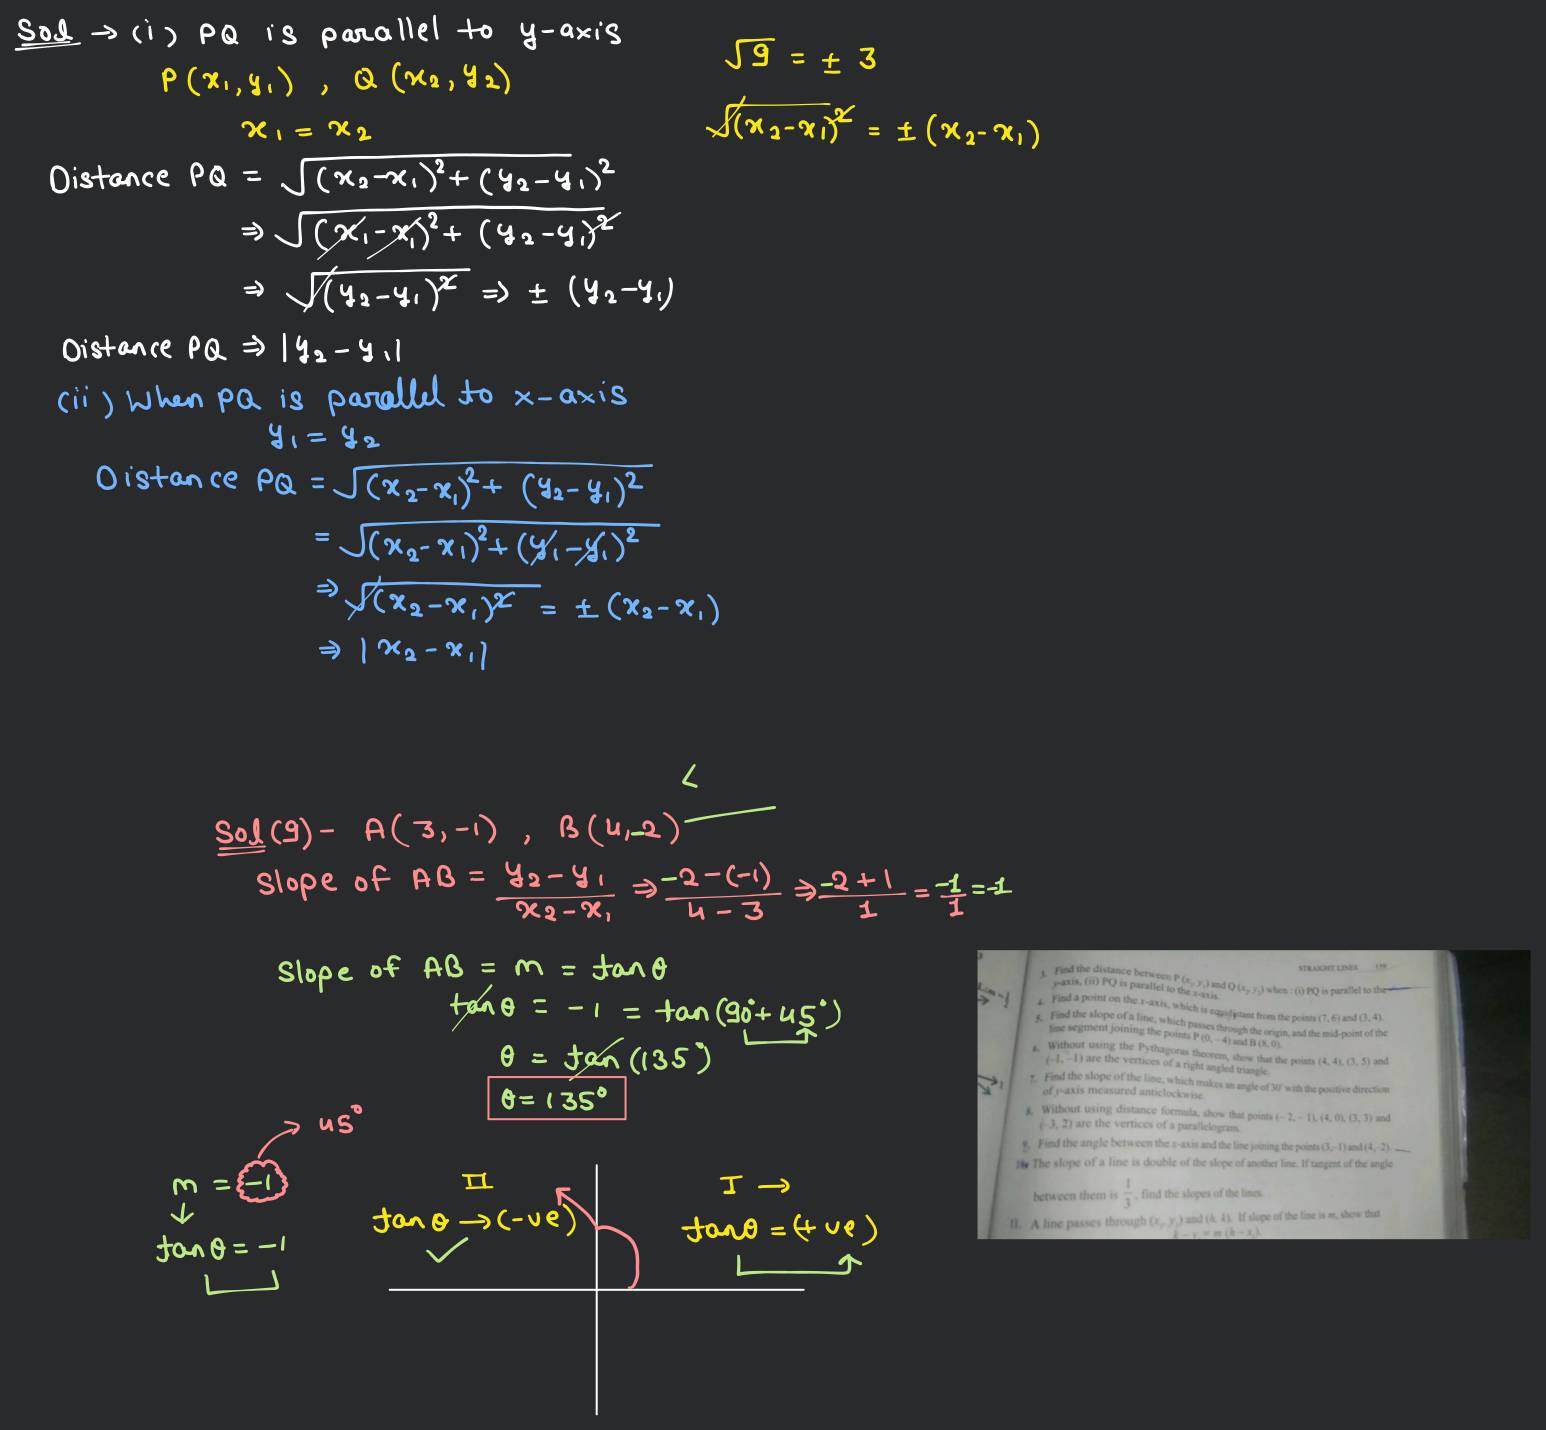 Sol → (i) PQ is parallel to y-axis
P(x₁, y₁) , Q(x₂, y₂)
x₁ = x₂
√9 = ± 3
√(x₂-x₁)² = ± (x₂-x₁)
Distance PQ = √(x₂-x₁)² + (y₂-y₁)²
⇒ √(x₁-x₁)² + (y₂-y₁)²
⇒ √(y₂-y₁)² ⇒ ± (y₂-y₁)
Distance PQ ⇒ |y₂-y₁|
(ii) When PQ is parallel to x-axis
y₁ = y₂
Distance PQ = √(x₂-x₁)² + (y₂-y₁)²
= √(x₂-x₁)² + (y₁-y₁)²
⇒ √(x₂-x₁)² = ± (x₂-x₁)
⇒ |x₂-x₁|
Sol (9) - A(3,-1) , B(4,-2)
Slope of AB = y₂-y₁/x₂-x₁ ⇒ -2-(-1)/4-3 ⇒ -2+1/1 = -1/1 = -1
Slope of AB = m = tanθ
tanθ = -1 = tan(90°+45°)
θ = tan(135°)
θ = 135°
45°
m = -1
↓
tanθ = -1
II
tanθ → (-ve)
I →
tanθ = (+ve)
STRAIGHT LINES
3. Find the distance between P (x₁, y₁) and Q (x₂, y₂) when : (i) PQ is parallel to the
y-axis, (ii) PQ is parallel to the x-axis.
4. Find a point on the x-axis, which is equidistant from the points (7, 6) and (3, 4).
5. Find the slope of a line, which passes through the origin, and the mid-point of the
line segment joining the points P (0, -4) and B (8, 0).
6. Without using the Pythagoras theorem, show that the points (4, 4), (3, 5) and
(-1, -1) are the vertices of a right angled triangle.
7. Find the slope of the line, which makes an angle of 30° with the positive direction
of y-axis measured anticlockwise.
8. Without using distance formula, show that points (-2, -1), (4, 0), (3, 3) and
(-3, 2) are the vertices of a parallelogram.
9. Find the angle between the x-axis and the line joining the points (3,-1) and (4,-2).
10. The slope of a line is double of the slope of another line. If tangent of the angle
between them is 1/3, find the slopes of the lines.
11. A line passes through (x₁, y₁) and (h, k). If slope of the line is m, show that
k - y₁ = m (h - x₁).